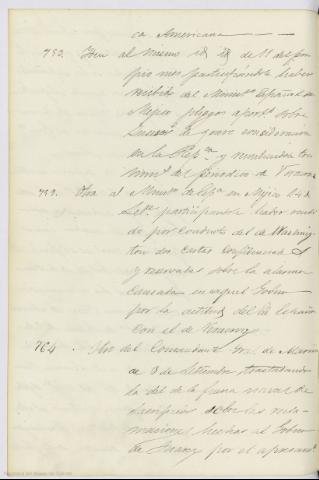 ca Americana
752. Idem al mismo id id de 11 del pro
pio mes participándole haber
recibido del Minist.º Español en
Mejico pliegos aport.s sobre
de grave consideracion
en la Rep.ca y remitiendole tres
num.s del periodico de Veracruz
753. Otra al Minist.º de Esp.a en Mejico 24 de
Set.re participandole haber recibi
do por conducto del de Washing
ton dos cartas confidenciales
y reservadas sobre la alarma
causada en aquel Gobierno
por la actitud del de España
con el de
764. Otro del Comandante Gral. de Marina
de 3 de Setiembre trasladando
la del de la fuerza naval de
sobre las recla
maciones hechas al Gobierno
de por el apresami